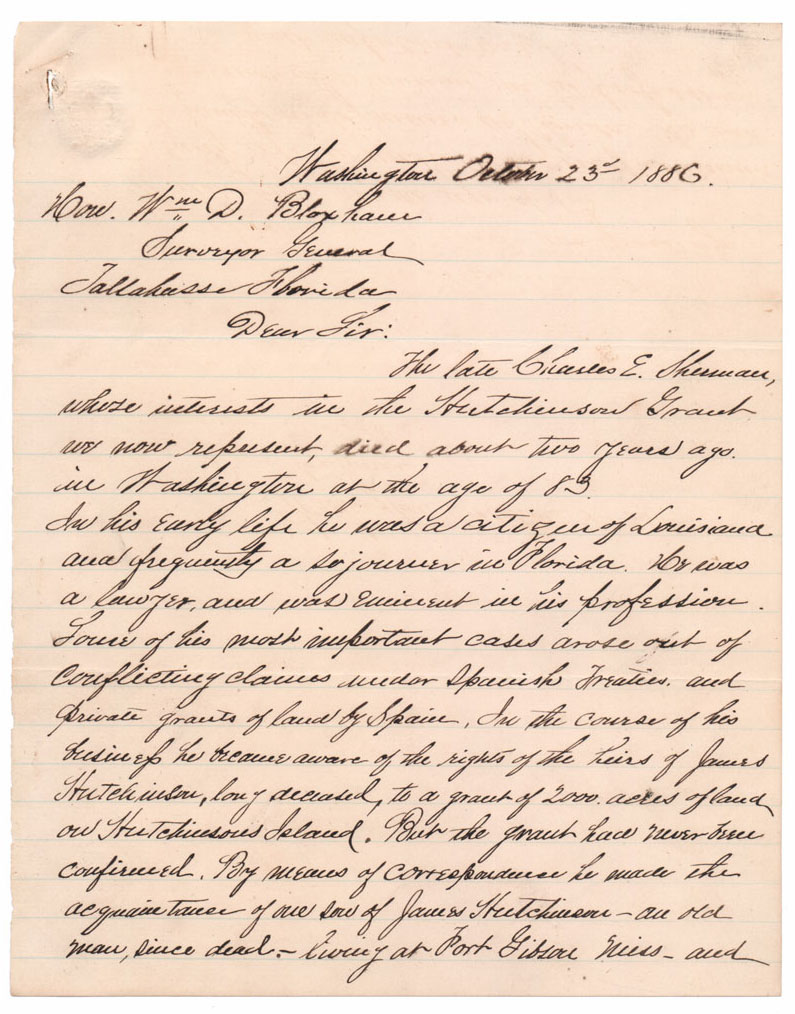 Washington October 23d 1886.
Hon. Wm D. Bloxham
Surveyor General
Tallahasse Florida
Dear Sir:
The late Charles E. Sherman,
whose interests in the Hutchinson Grant
we now represent, died about two years ago.
in Washington at the age of 83
In his early life he was a citizen of Louisiana
and frequently a sojourner in Florida. He was
a lawyer, and was eminent in his profession.
Some of his most important cases arose out of
conflicting claims under Spanish Treaties. and
private grants of land by Spain. In the course of his
business he became aware of the rights of the heirs of James
Hutchinson, long deceased, to a grant of 2000. acres of land
on Hutchinsons Island. But the grant had never been
confirmed. By means of correspondence he made the
acquaintance of one son of James Hutchinson – an old
man, since dead – living at Port Gibson Miss – and